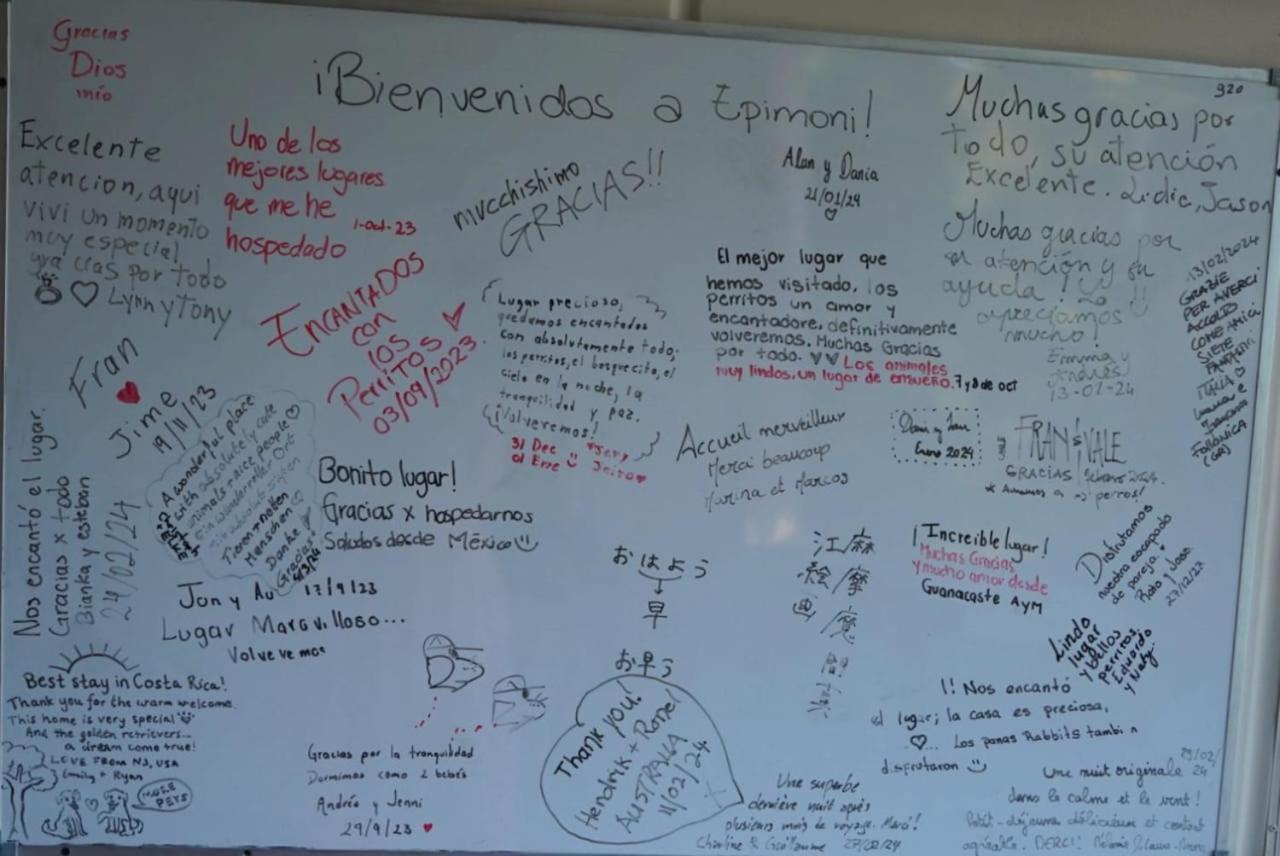 Gracias
Dios
mío
¡Bienvenidos a Epimoni!
920
Muchas gracias por
todo, su atención
Excelente. Lidic, Jason
Excelente
atencion, aqui
vivi un momento
muy especial
gracias por todo
Lynn y Tony
Uno de los
mejores lugares
que me he
hospedado
1-oct-23
mucchishimo
GRACIAS!!
Alan y Dania
21/01/24
Muchas gracias por
su atención y su
ayuda! Lo
apreciamos
mucho!
Emma y
Andrés
13-02-24
13/02/2024
GRAZIE
PER AVERCI
ACCOLTO
COME AMICI
SIETE
FANTASTICI
ITALIA
FOLLONICA
(GR)
ENCANTADOS
con
los
Perritos
03/09/2023
Lugar precioso,
quedamos encantados
con absolutamente todo;
los perritos, el bosquecito, el
cielo en la noche, la
tranquilidad y paz.
¡Volveremos!
31 Dec
01 Ene
El mejor lugar que
hemos visitado, los
perritos un amor y
encantadore, definitivamente
volveremos. Muchas Gracias
por todo. Los animales
muy lindos, un lugar de ensueño. 7 y 8 de oct
Fran
Jime
19/11/23
Nos encantó el lugar.
Gracias x todo
Bianka y esteban
24/02/24
A wonderful place
with absolutely cute
animals + nice people
Ein wundervoller Ort
mit absolut süßen
Tieren + netten
Menschen
Danke
Gracias
Bonito lugar!
Gracias x hospedarnos
Saludos desde México
Accueil merveilleux
Merci beaucoup
Marina et Marcos
Enero 2024
FRAN & VALE
GRACIAS, febrero 2024.
* Amamos a perros!
Jon y Au 17/9/23
Lugar Maravilloso...
Volveremos
おはよう
早
お早う
江麻
絵摩
画魔
¡Increible lugar!
Muchas Gracias
y mucho amor desde
Guanacaste AyM
Disfrutamos
nuestra escapada
de pareja
27/12/23
Lindo
lugar
y bellos
perritos,
Eduardo
y Naty.
Best stay in Costa Rica!
Thank you for the warm welcome.
This home is very special
And the golden retrievers...
a dream come true!
LOVE FROM NJ, USA
Emily + Ryan
MORE
PETS
Gracias por la tranquilidad
Dormimos como 2 bebés
Andrés y Jenni
29/9/23
Thank you!
Hendrik + Ronel
AUSTRALIA
11/02/24
!! Nos encantó
el lugar; la casa es preciosa,
... Los panas Rabbits también
disfrutaron
Une superbe
dernière nuit après
plusieurs mois de voyage. Merci!
Charline & Guillaume 27/02/24
Une nuit originale
dans le calme et le vent!
Petit-déjeuner délicieux et contact
agréable. MERCI!